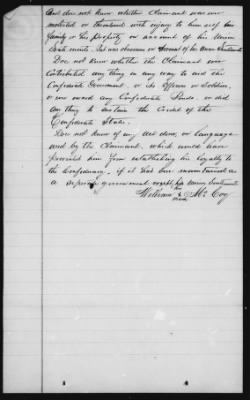 But does not know whether Claimant was ever
molested or threatened with injury to himself his
family or his property on account of his Union
Sentiments.
Does not know whether the Claimant ever
contributed any thing in any way to aid the
Confederate Government, or its Officers or Soldiers,
or ever owned any Confederate Bonds or did
any thing to sustain the Credit of the
Confederate States.
Does not know of any act done, or language
used by the Claimant, which would have
prevented him from establishing his loyalty to
the Confederacy, if it had been maintained as
a separate government except his Union Sentiments
his
William x McCoy
mark